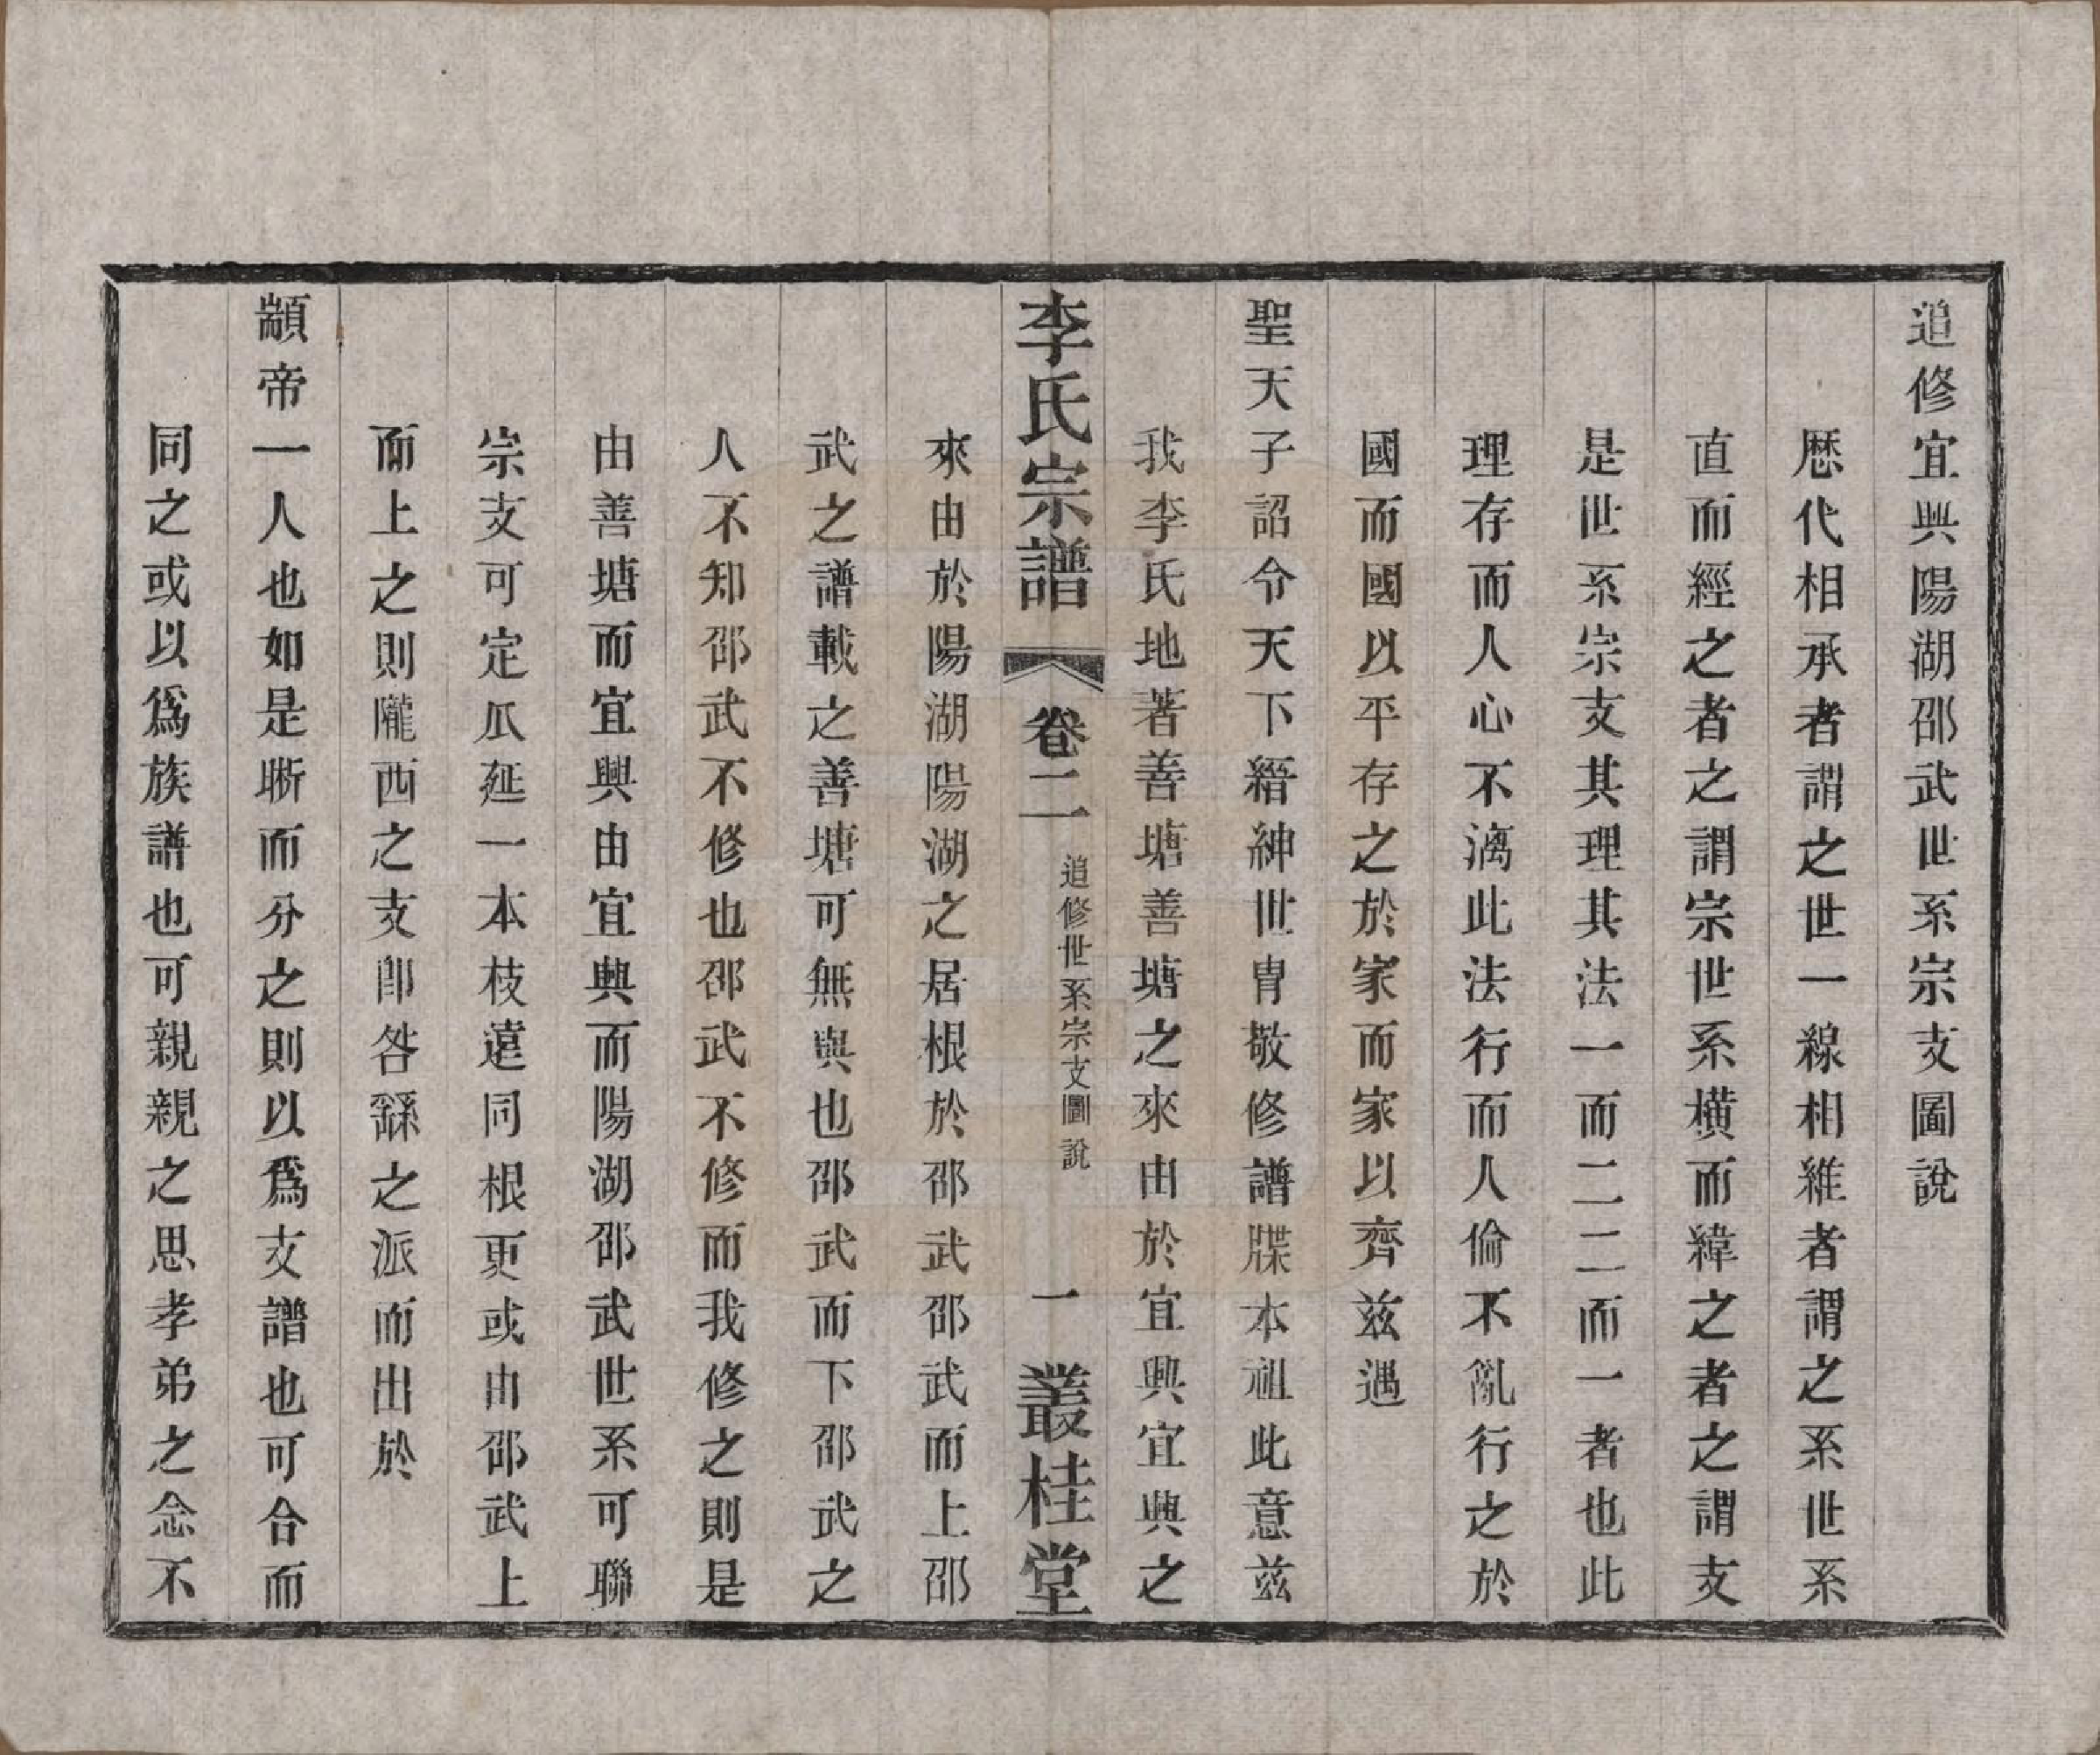 追修宜興陽湖邵武世系宗支圖說
歷代相承者謂之世一線相維者謂之系世系
直而經之者之謂宗世系橫而緯之者之謂支
是世系宗支其理其法一而二二而一者也此
理存而人心不漓此法行而人倫不亂行之於
國而國以平存之於家而家以齊茲遇
聖天子詔令天下縉紳世胄敬修譜牒本祖此意茲
我李氏地著善塘善塘之來由於宜興宜興之
李氏宗譜 卷二 追修世系宗支圖說 一 叢桂堂
來由於陽湖陽湖之居根於邵武邵武而上邵
武之譜載之善塘可無與也邵武而下邵武之
人不知邵武不修也邵武不修而我修之則是
由善塘而宜興由宜興而陽湖邵武世系可聯
宗支可定瓜延一本枝遠同根更或由邵武上
而上之則隴西之支卽咎繇之派而出於
顓帝一人也如是晰而分之則以爲支譜也可合而
同之或以爲族譜也可親親之思孝弟之念不